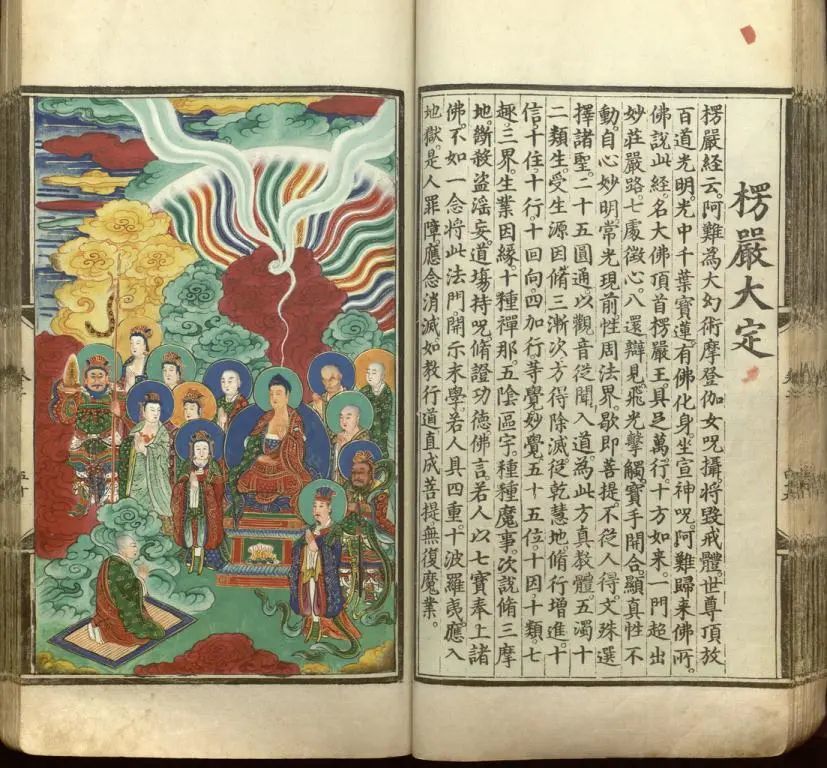 楞嚴大定
楞嚴經云。阿難為大幻術摩登伽女咒攝。將毀戒體。世尊頂放
百道光明。光中千葉寶蓮。有佛化身。坐宣神咒。阿難歸來佛所。
佛說此經。名大佛頂首楞嚴王。具足萬行。十方如來。一門超出
妙莊嚴路。七處徵心。八還辯見。飛光擊觸。寶手開合。顯真性不
動。自心妙明。常光現前。性周法界。歇即菩提。不從人得。文殊選
擇諸聖。二十五圓通。以觀音從聞入道。為此方真教體。五濁十
二類生。受生源因。脩三漸次。方得除滅。從乾慧地。脩行增進。十
信。十住。十行。十回向。四加行。等覺。妙覺。五十五位。十因。十類。七
趣。三界。生業因緣。十種禪那。五陰區宇。種種魔事。次說脩三摩
地。斷殺盜滛妄。道塲持咒。脩證功德。佛言。若人以七寶奉上諸
佛。不如一念將此法門。開示末學。若人具四重。十波羅夷。應入
地獄。是人罪障。應念消滅。如教行道。直成菩提。無復魔業。